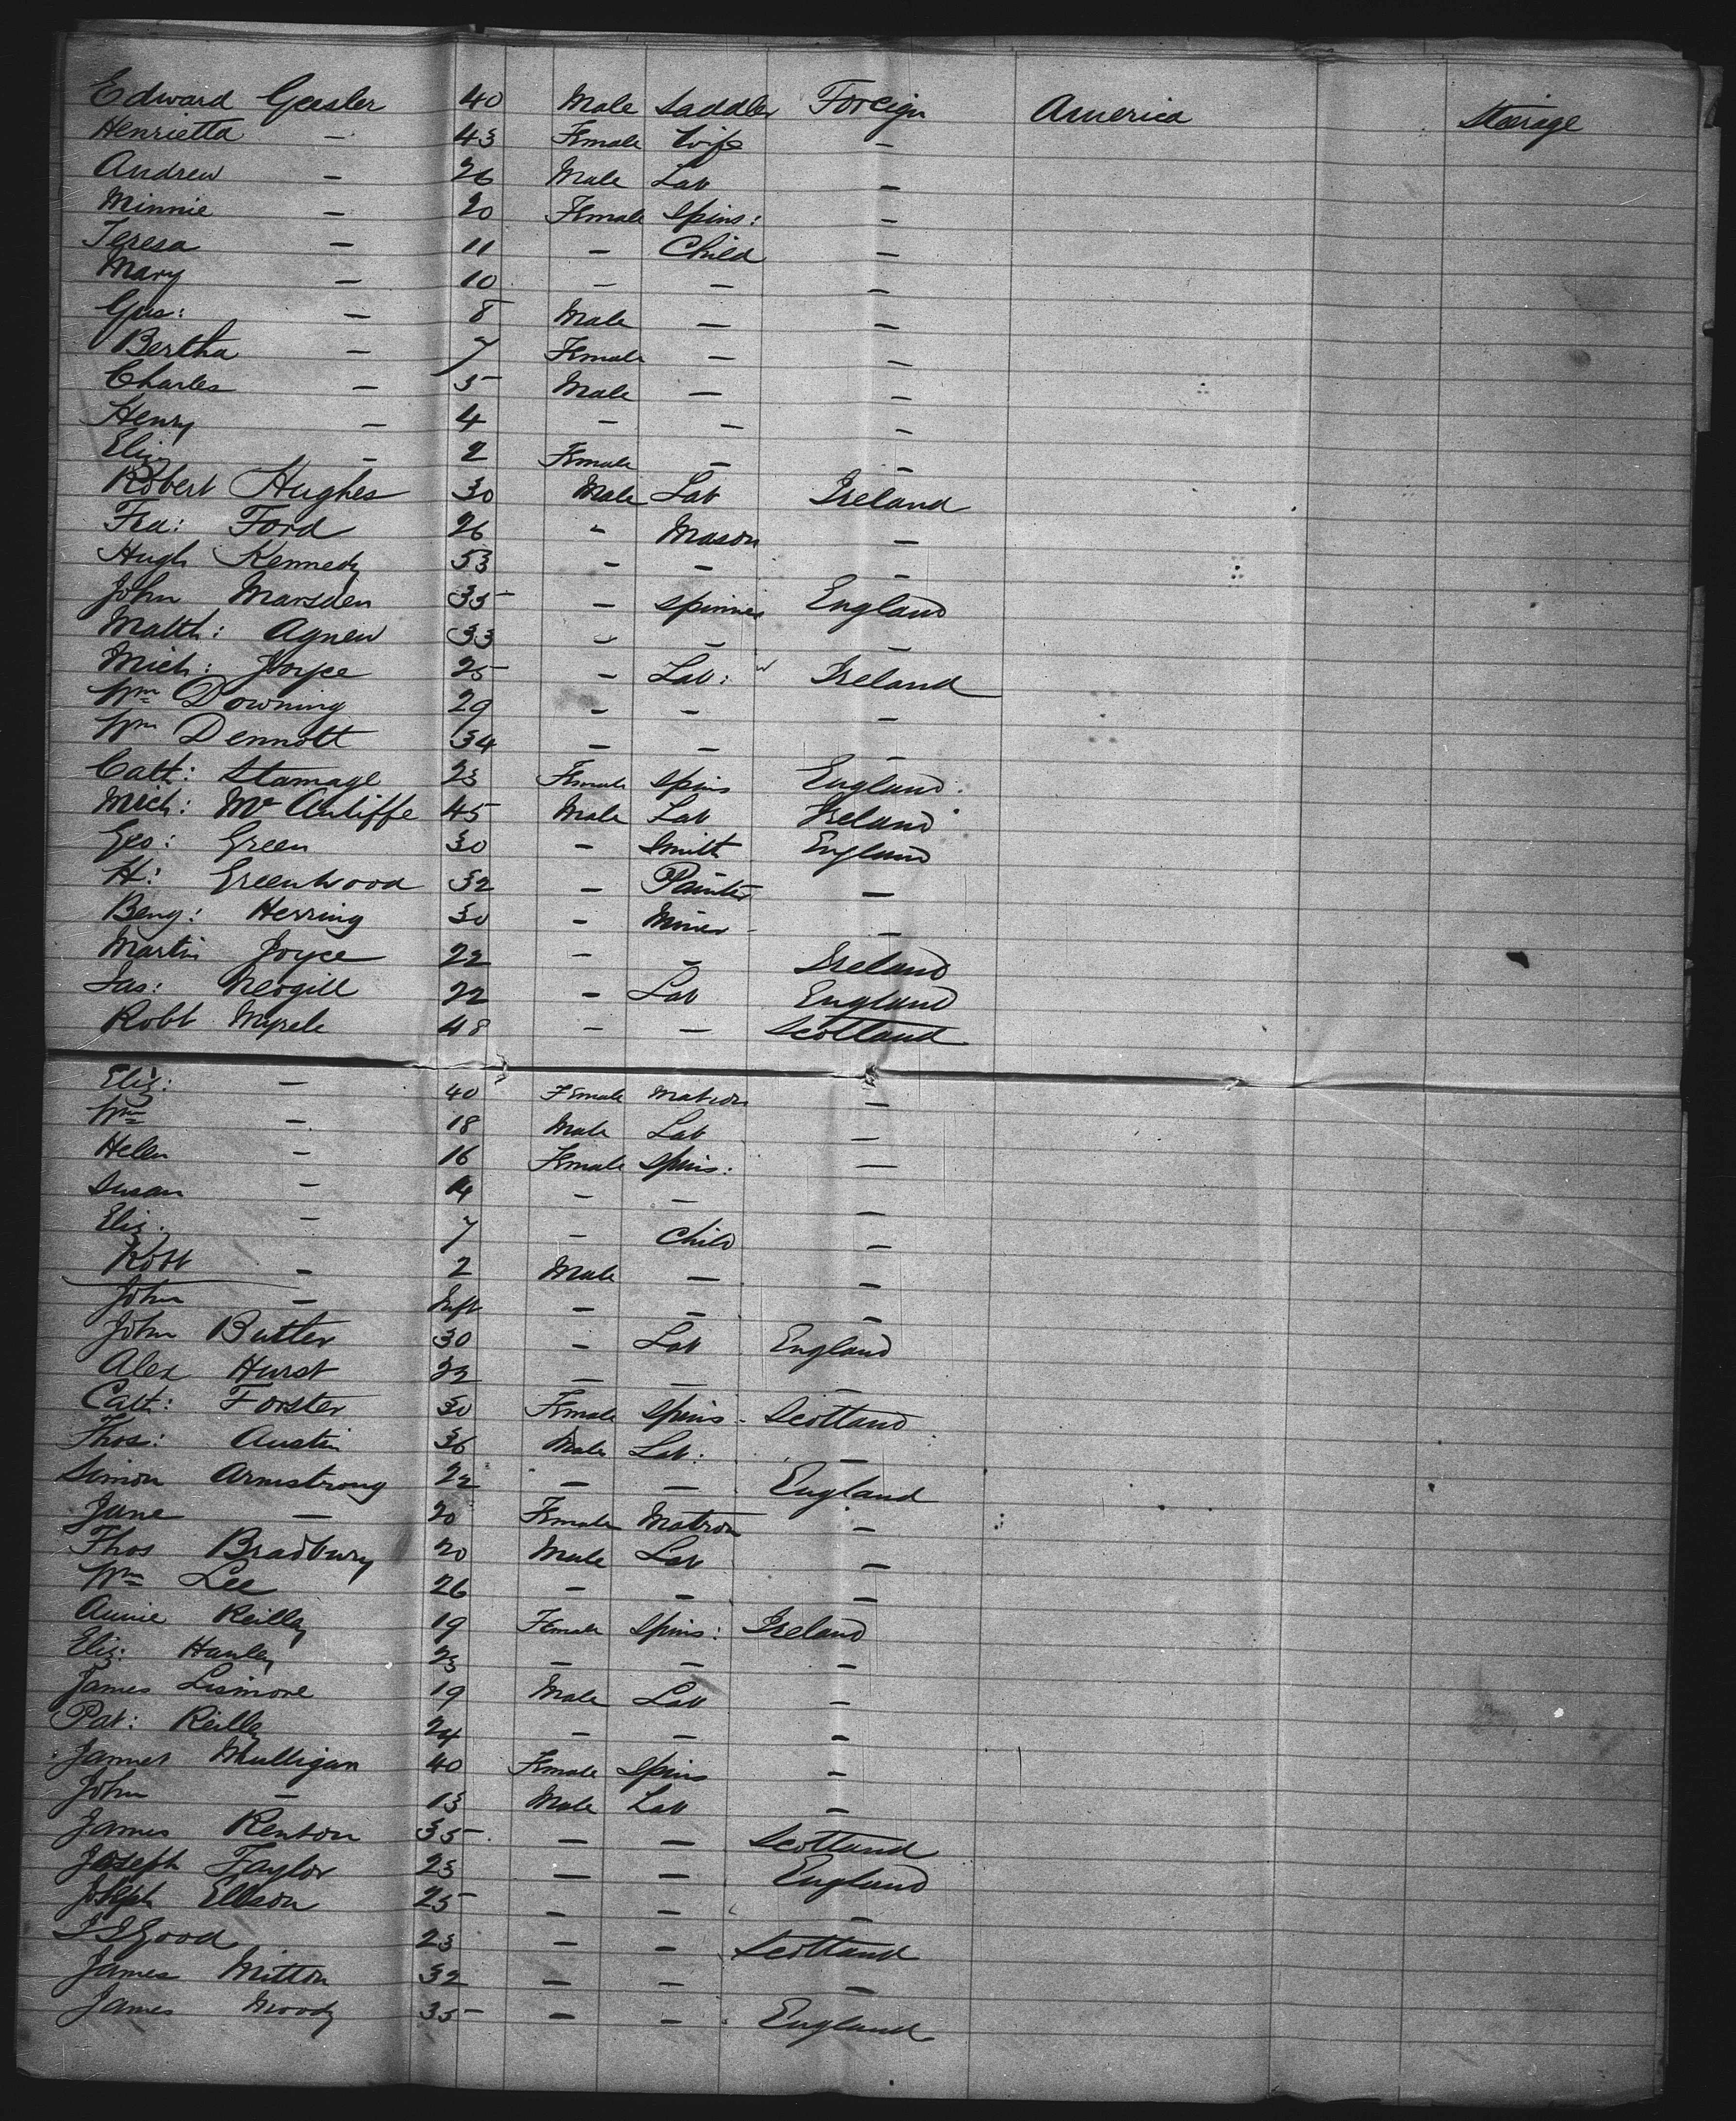 Edward Geesler 40 Male Saddler Foreign America Steerage
Henrietta — 43 Female Wife —
Andrew — 26 Male Lab —
Minnie — 20 Female Spins: —
Teresa — 11 — Child —
Mary — 10 — — —
Gus: — 8 Male — —
Bertha — 7 Female — —
Charles — 5 Male — —
Henry — 4 — — —
Eliz — 2 Female — —
Robert Hughes 30 Male Lab Ireland
Fra: Ford 26 " Mason —
Hugh Kennedy 53 — — —
John Marsden 35 — Spinner England
Matth: Agnew 33 — — —
Mich: Joyce 25 — Lab: Ireland
Wm Downing 29 — — —
Wm Dennott 34 — —
Cath: Stamage 23 Female Spins England
Mich: McAuliffe 45 Male Lab Ireland
Geo: Green 30 — Smith England
H: Greenwood 32 — Painter —
Benj: Herring 30 — Miner —
Martin Joyce 22 — — Ireland
Jas: 22 — Lab England
Robt 48 — — Scotland
Eliz: — 40 Female Matron —
Wm — 18 Male Lab —
Helen — 16 Female Spins: —
Susan — 14 — — —
Eliz. — 7 — Child —
Robt — 2 Male — —
John — Inft — — —
John Butler 30 — Lab England
Alex Hurst 22 — — —
Cath: Forster 30 Female Spins Scotland
Thos: Austin 36 Male Lab: —
Simon Armstrong 22 — — England
Jane — 20 Female Matron —
Thos Bradbury 20 Male Lab —
Wm Lee 26 — — —
Annie Reilly 19 Female Spins: Ireland
Eliz: Hanley 23 — — —
James Lismore 19 Male Lab —
Pat: Reilly 24 — — —
Mulligan 40 Female Spins —
John — 13 Male Lab —
James Renton 35 — — Scotland
Joseph Taylor 23 — — England
Joseph Ellison 25 — — —
Good 23 — — Scotland
James Mitton 32 — — —
James Moody 35 — — England